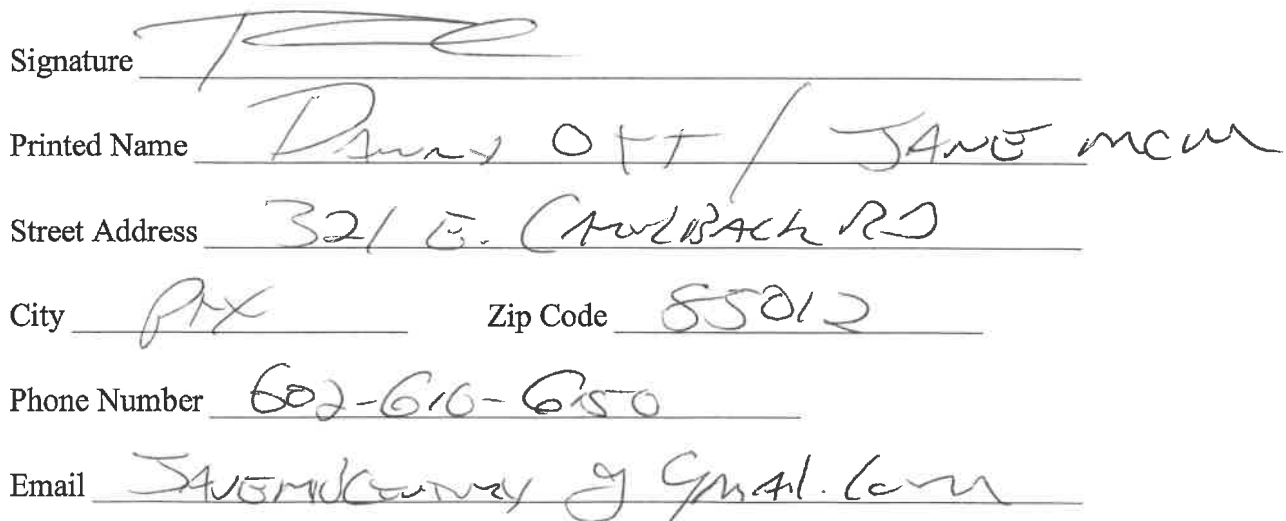 Signature
Printed Name Danny Ott / JANE MCM
Street Address 321 E. CAMELBACK RD
City PHX Zip Code 85012
Phone Number 602-616-6150
Email @ Gmail.com